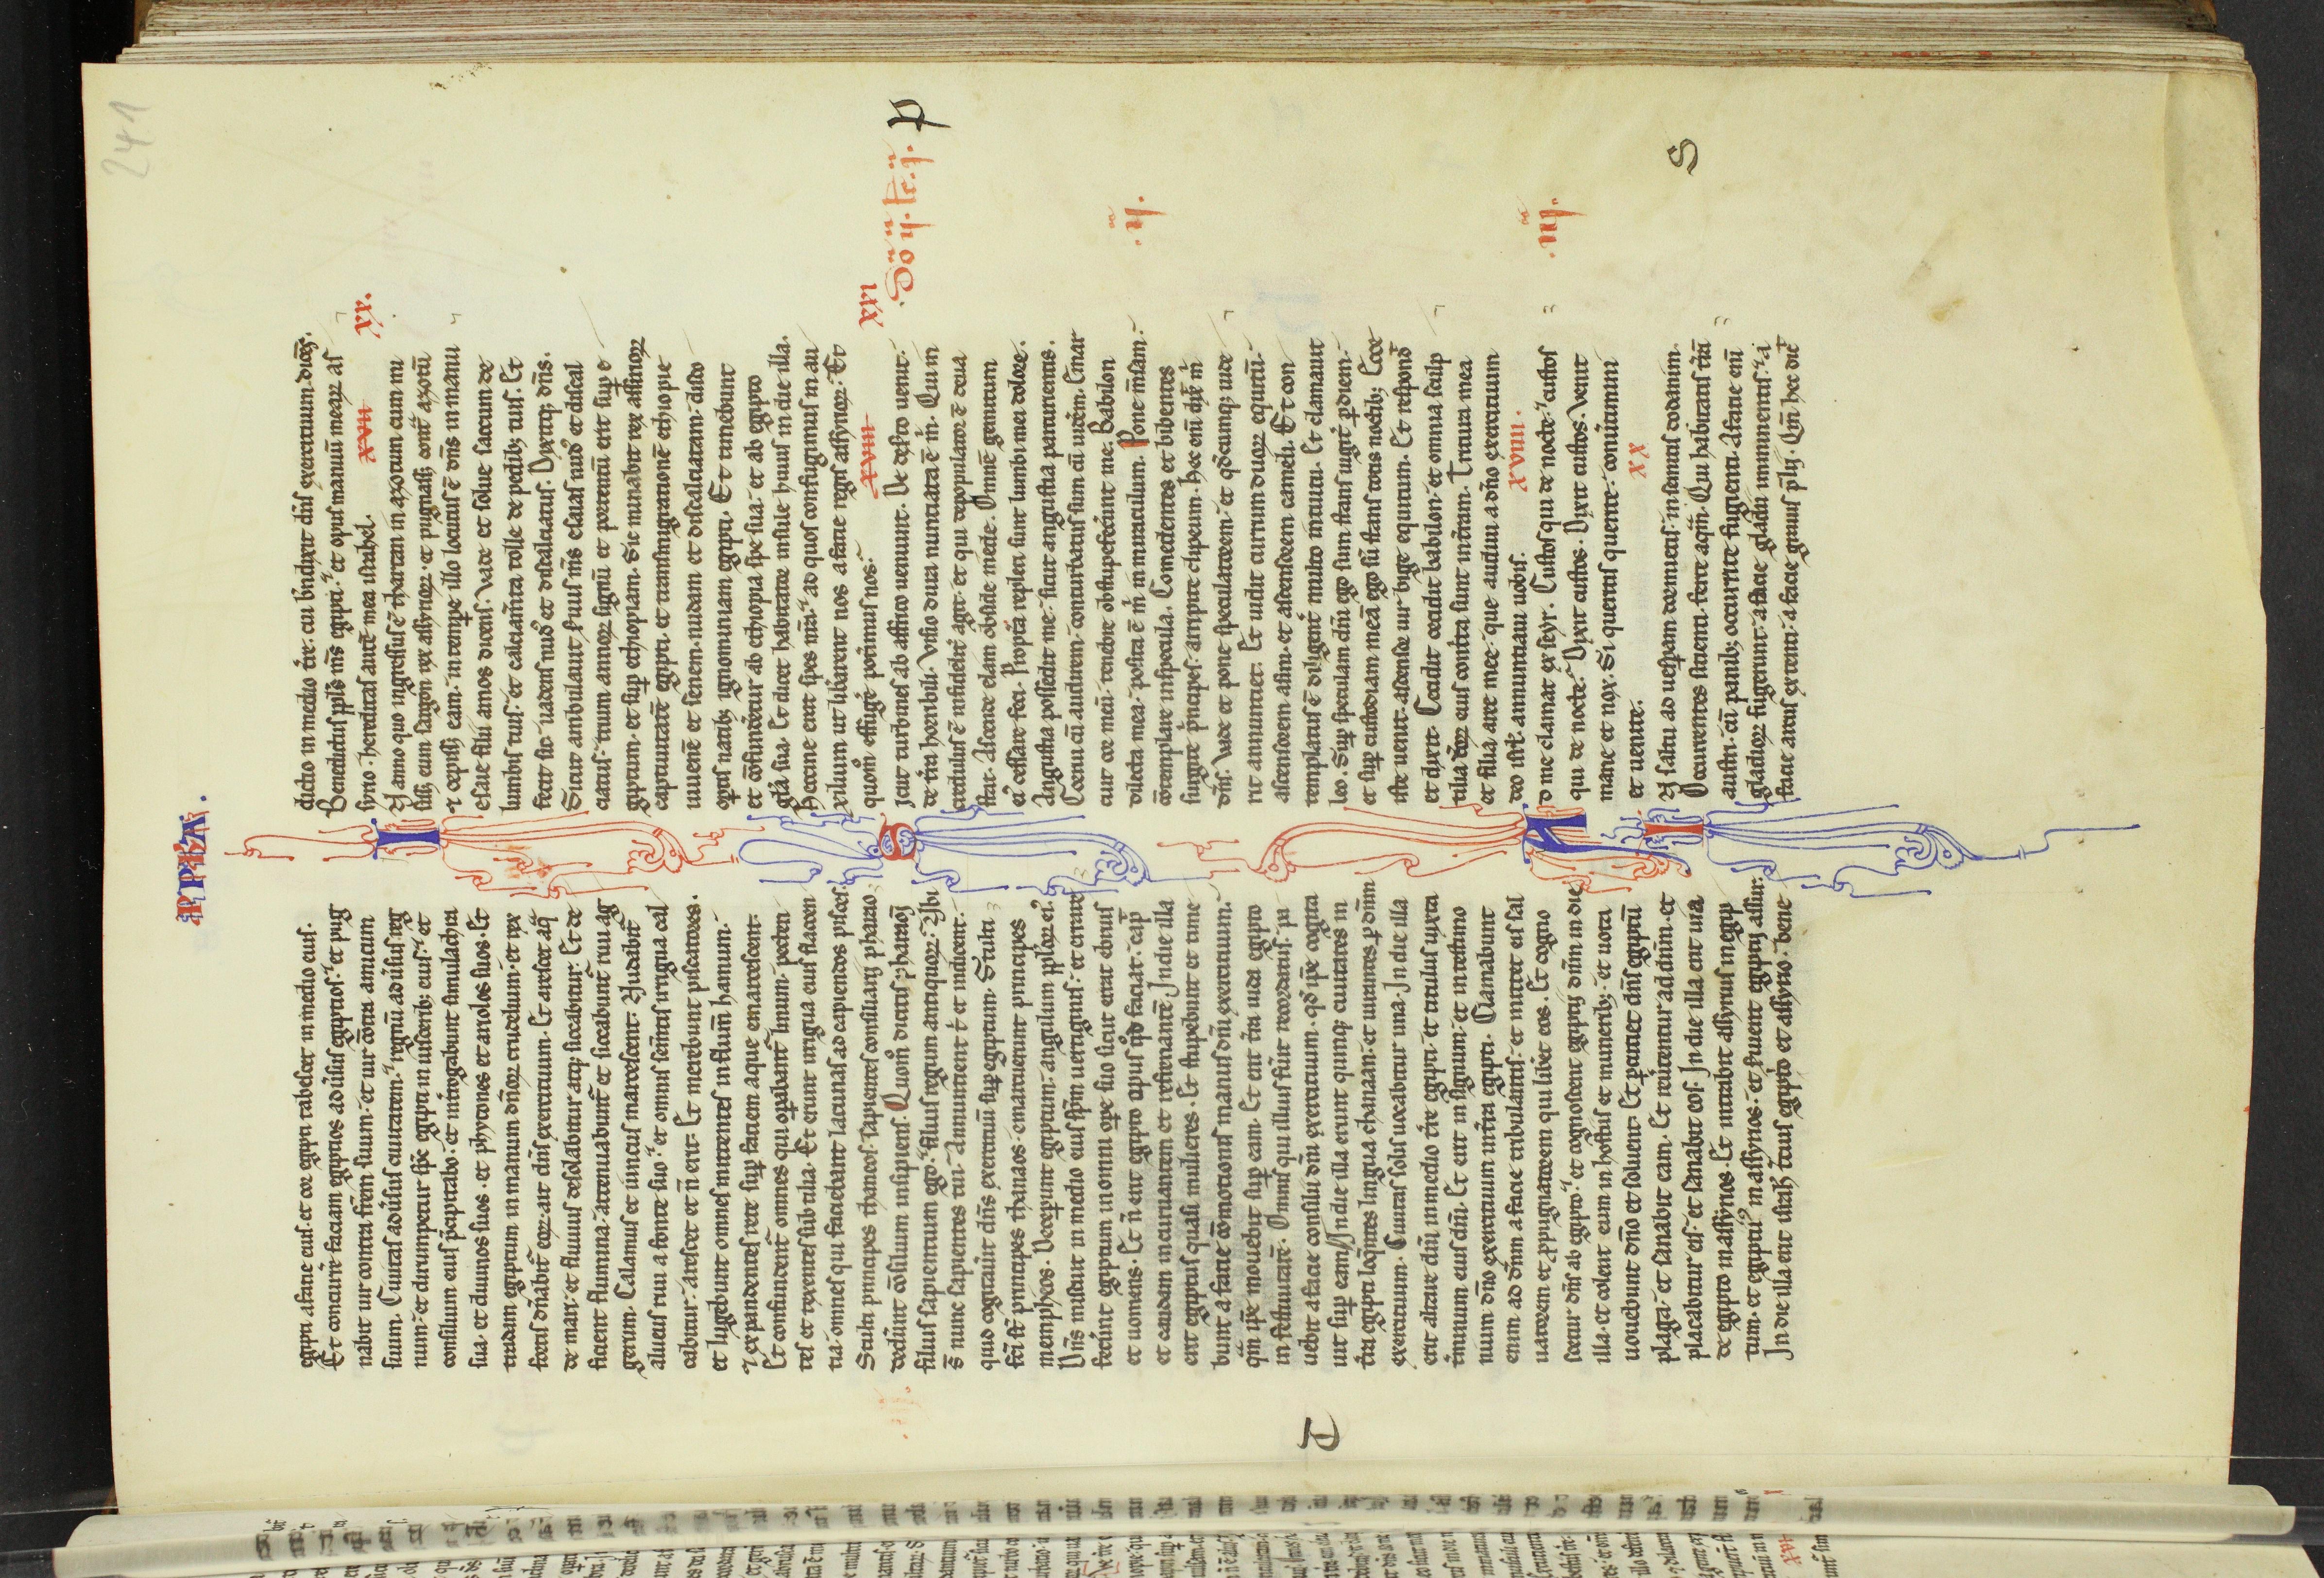 241
APIA.
egipti a facie eius. et cor egipti tabescet in medio eius.
Et concurre᷒ faciam egiptios adūsus egiptios. et pug
nabit uir contra frēm suum. et uir cōtra amicum
suum. Ciuitas adūsus ciuitatem. regnū adūsus reg
num. et dirumpetur spc̄ egipti in uiscerib; eius. et
consilium eius p̄cipitabo. et int̄rogabunt simulachra
sua. et diuinos suos. et phytones et ariolos suos. Et
tradam egiptum in manum dn̄oꝝ crudelium. et rex
fortis dn̄abit̄ eoꝝ. ait dn̄s exercituum. Et arescet aq̄
de mari. et fluuius desolabitur atq; siccabitur. Et de
ficient flumina. attenuabunt̄ et siccabunt̄ riui ag
gerum. Calamus et iuncus marcescent. Nudabit̄
alueus riui a fonte suo. et omnis sem̄tis irrigua cal
cabitur. arescet et n̄ erit. Et merebunt piscatores.
et lugebunt omnes mittentes in flum̄ hamum.
⁊ expandentes rete suꝑ faciem aque emarcescent.
Et confundent̄ omnes qui oꝑabant̄ linum. pecten
tes et texentes subtilia. Et erunt irrigua eius flaccen
tia. omnes qui faciebant lacunas ad capiendos pisces.
Stulti principes thaneos. sapientes consiliarij pharao
dedūnt cōsilium insipiens. Quom̄ dicitis pharaoni
filius sapientium ego. filius regum antiquoꝝ. Ubi
s̄ nunc sapientes tui. annuntient t̄ et indicent.
quid cogitauit dn̄s exercituū suꝑ egyptum. Stulti
fc̄i st̄ principes thanaos. emarcuerunt principes
mempheos. Deceperunt egiptum. angulum pploꝝ ei᷒.
Dn̄s miscuit in medio eius spm̄ uertiginis. et errare
fecerūt egiptum in omni oꝑe suo sicut errat ebrius
et uomens. Et n̄ erit egipto opus qd̄ faciat. cap̄
et caudam incuruantem et refrenantē. In die illa
erit egiptus quasi mulieres. Et stupebunt et time
bunt a facie cōmotionis manus dn̄i exercituum.
qm̄ ip̄e mouebit suꝑ eam. Et erit tr̄a iuda egipto
in festiuitatē. Omnis qui illius fuit recordatus. pa
uebit a facie consilii dn̄i exercituum. qd̄ ip̄e cogita
uit suꝑ eam. In die illa erunt quinq; ciuitates in
tr̄a egipti loq̄ntes lingua chanaan. et iurantes ꝑ dn̄m
exercituum. Ciuitas solis uocabitur una. In die illa
erit altare dn̄i in medio tr̄e egipti. et titulus iuxta
t̄minum eius dn̄i. Et erit in signum. et in testimo
nium dn̄o exercituum in tr̄a egipti. Clamabunt
enim ad dn̄m a facie tribulantis. et mittet eis sal
uatorem et ꝓpugnatorem qui lib̄et eos. Et cogno
scetur dn̄s ab egipto. et cognoscent egiptij dn̄m in die
illa. et colent eum in hostiis et munerib;. et uota
uouebunt dn̄o et soluent. Et ꝑcutiet dn̄s egiptū
plaga. et sanabit eam. Et reūtentur ad dn̄m. et
placabitur eis. et sanabit eos. In die illa erit uia
de egipto in assyrios. Et intrabit assyrius in egip
tum. et egiptiꝰ in assyrios. et seruient egiptij assur.
In die illa erit isrl̄ tercius egipto et assyrio. bene
dictio in medio tr̄e. cui bn̄dixit dn̄s exercituum dices.
Benedictus ppl̄s ms̄ egipti. et opus manuū meaꝝ as
syrio. hereditas autē mea israhel. xvii xx.
IN anno quo ingressus ē thartan in azotum cum mi
siss; eum sargon rex assyrioꝝ. et pugnass; cont̄ azotū
⁊ cepiss; eam. in tempe illo locutus ē dn̄s in manu
esaie filii amos dicens. Vade et solue saccum de
lumbis tuis. et calciam̄ta tolle de pedib; tuis. Et
fecit sic. uadens nudꝰ et discalciatus. Dixitq; dn̄s.
Sicut ambulauit seruus ms̄ esaias nudꝰ et discal
ciatus. trium annoꝝ signū et portentū erit suꝑ e
giptum. et suꝑ ethiopiam. Sic minabit rex assirioꝝ
captiuitatē egipti. et transmigrationē ethiopie
iuuenē et senem. nudam et discalciatam. disco
oꝑtis natib; ignominiam egypti. Et timebunt
et cōfundētur ab ethiopia spe sua. et ab egipto
glā sua. Et dicet habitator insule huius in die illa.
Heccine erat spes nr̄a. ad quos confugimus in au
xilium ut lib̄arent nos a facie regis assyrioꝝ. Et
quom̄ effugē potimus nos. xviii xxi
Sicut turbines ab affrico ueniunt. De deserto uenit. Dō ij. fr̄. ij. p
de tr̄a horribili. Visio dura nuntiata ē m̄. Qui in
credulus ē infidelit̄ agit. et qui depopulator ē deua
stat. Ascende elam obside mede. Omnē gemitum
eiꝰ cessare feci. Propt̄a repleti sunt lumbi mei dolore.
Angustia possedit me. sicut angustia parturientis.
Corrui cū audirem. conturbatus sum cū uidēm. Emar
cuit cor meū. tenebre obstupefecerūt me. Babilon
dilecta mea. posita ē m̄ in miraculum. Pone m̄sam. .ij.
cōtemplare in specula. Comedentes et bibentes
surgite p̄ncipes. arripite clipeum. Hec eni᷒ dix̄ m̄
dn̄s. Vade et pone speculatorem. et qd̄cumq; uide
rit annuntiet. Et uidit currum duoꝝ equitū.
ascensorem asini. et ascensorem cameli. Et con
templatus ē diligent̄ multo intuitu. Et clamauit
leo. Suꝑ speculam dn̄i ego sum stans iugit̄ ꝑ diem.
et suꝑ custodiam meā ego sū stans totis noctib;. Ecce
iste uenit. ascensor uir bige equitum. Et respond̄
et dixit. Cecidit cecidit babilon. et omnia sculp
tilia deoꝝ eius contrita sunt in tr̄am. Tritura mea
et filia aree mee. que audiui a dn̄o exercituum
deo isrl̄. annuntiaui uobis. xviiii. .iij.
Ad me clamat ex seyr. Custos qui de nocte. custos
qui de nocte. Dixit custos. Venit
mane et nox. Si queritis querite. conūtimini
et uenite. xx
IN saltu ad uesꝑam dormietis. in semitis dodanim. S
Occurrentes sitienti. ferte aqm̄. Qui habitatis tr̄ā
austri. cū panib; occurrite fugienti. A facie eni᷒
gladioꝝ fugerunt. a facie gladii imminentis. a
facie arcus extenti. a facie grauis p̄lij. Qm̄ hec dic̄